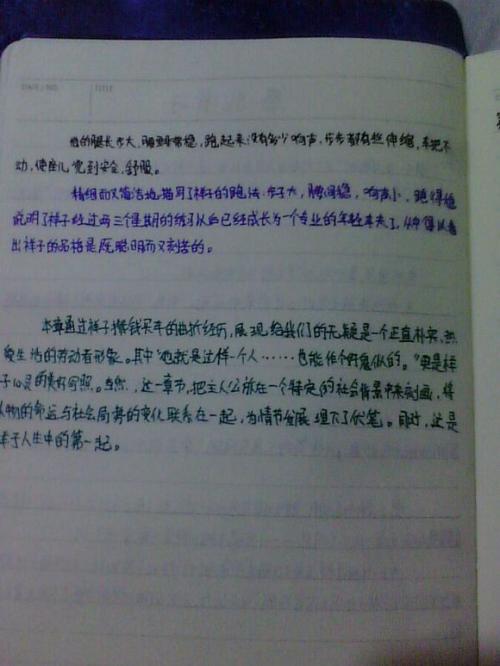 他的腿长步大，腰里非常稳，跑起来没有多少响声，步步都有些伸缩，车把不
动，使座儿觉到安全，舒服。
精细而又简洁地描写了祥子的跑法：步子大，腰间稳，响声小，跑得稳
说明了祥子经过两三个星期的练习从而已经成长为一个专业的年轻车夫了，从中得以看
出祥子的品格是既聪明而又刻苦的。
本章通过祥子攒钱买车的曲折经历，展现给我们的无疑是一个正直朴实，热
爱生活的劳动者形象。其中"他就是这样一个人……也能作个好鬼似的。"更是祥
子心灵的真好写照。当然，这一章节，把主人公放在一个特定的社会背景中来刻画，将
人物的命运与社会局势的变化联系在一起，为情节发展埋下了伏笔。同时，这是
祥子人生中的第一起。